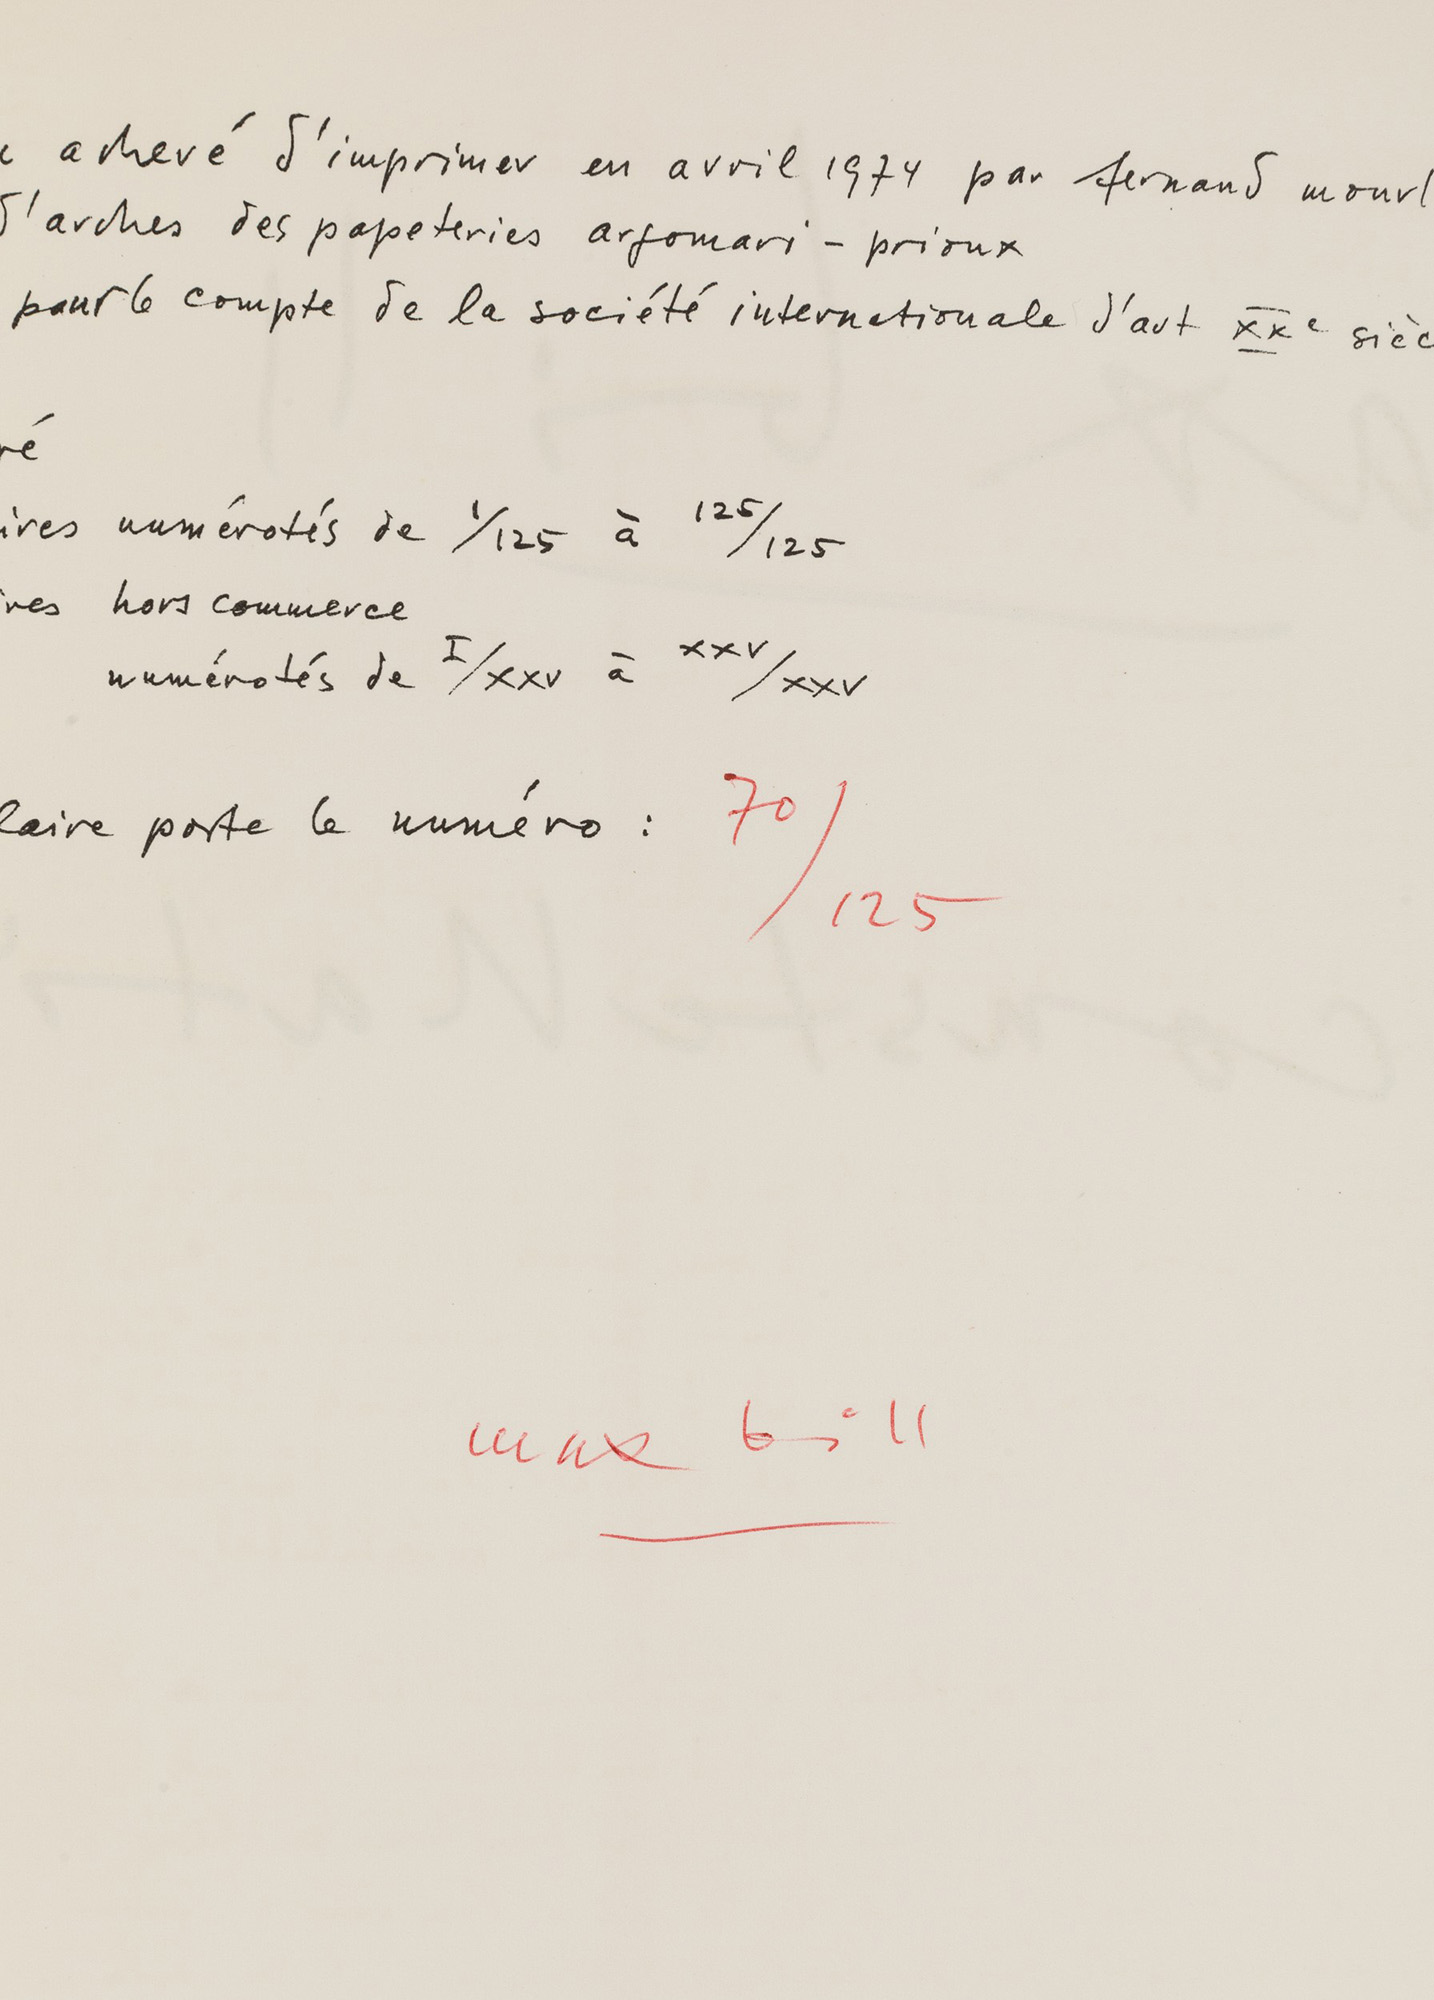 achevé d'imprimer en avril 1974 par fernand mourl
d'arches des papeteries arjomari - prioux
pour le compte de la société internationale d'art xxe sièc
ré
ires numérotés de 1/125 à 125/125
ires hors commerce
numérotés de I/xxv à xxv/xxv
laire porte le numéro : 70/125
max bill